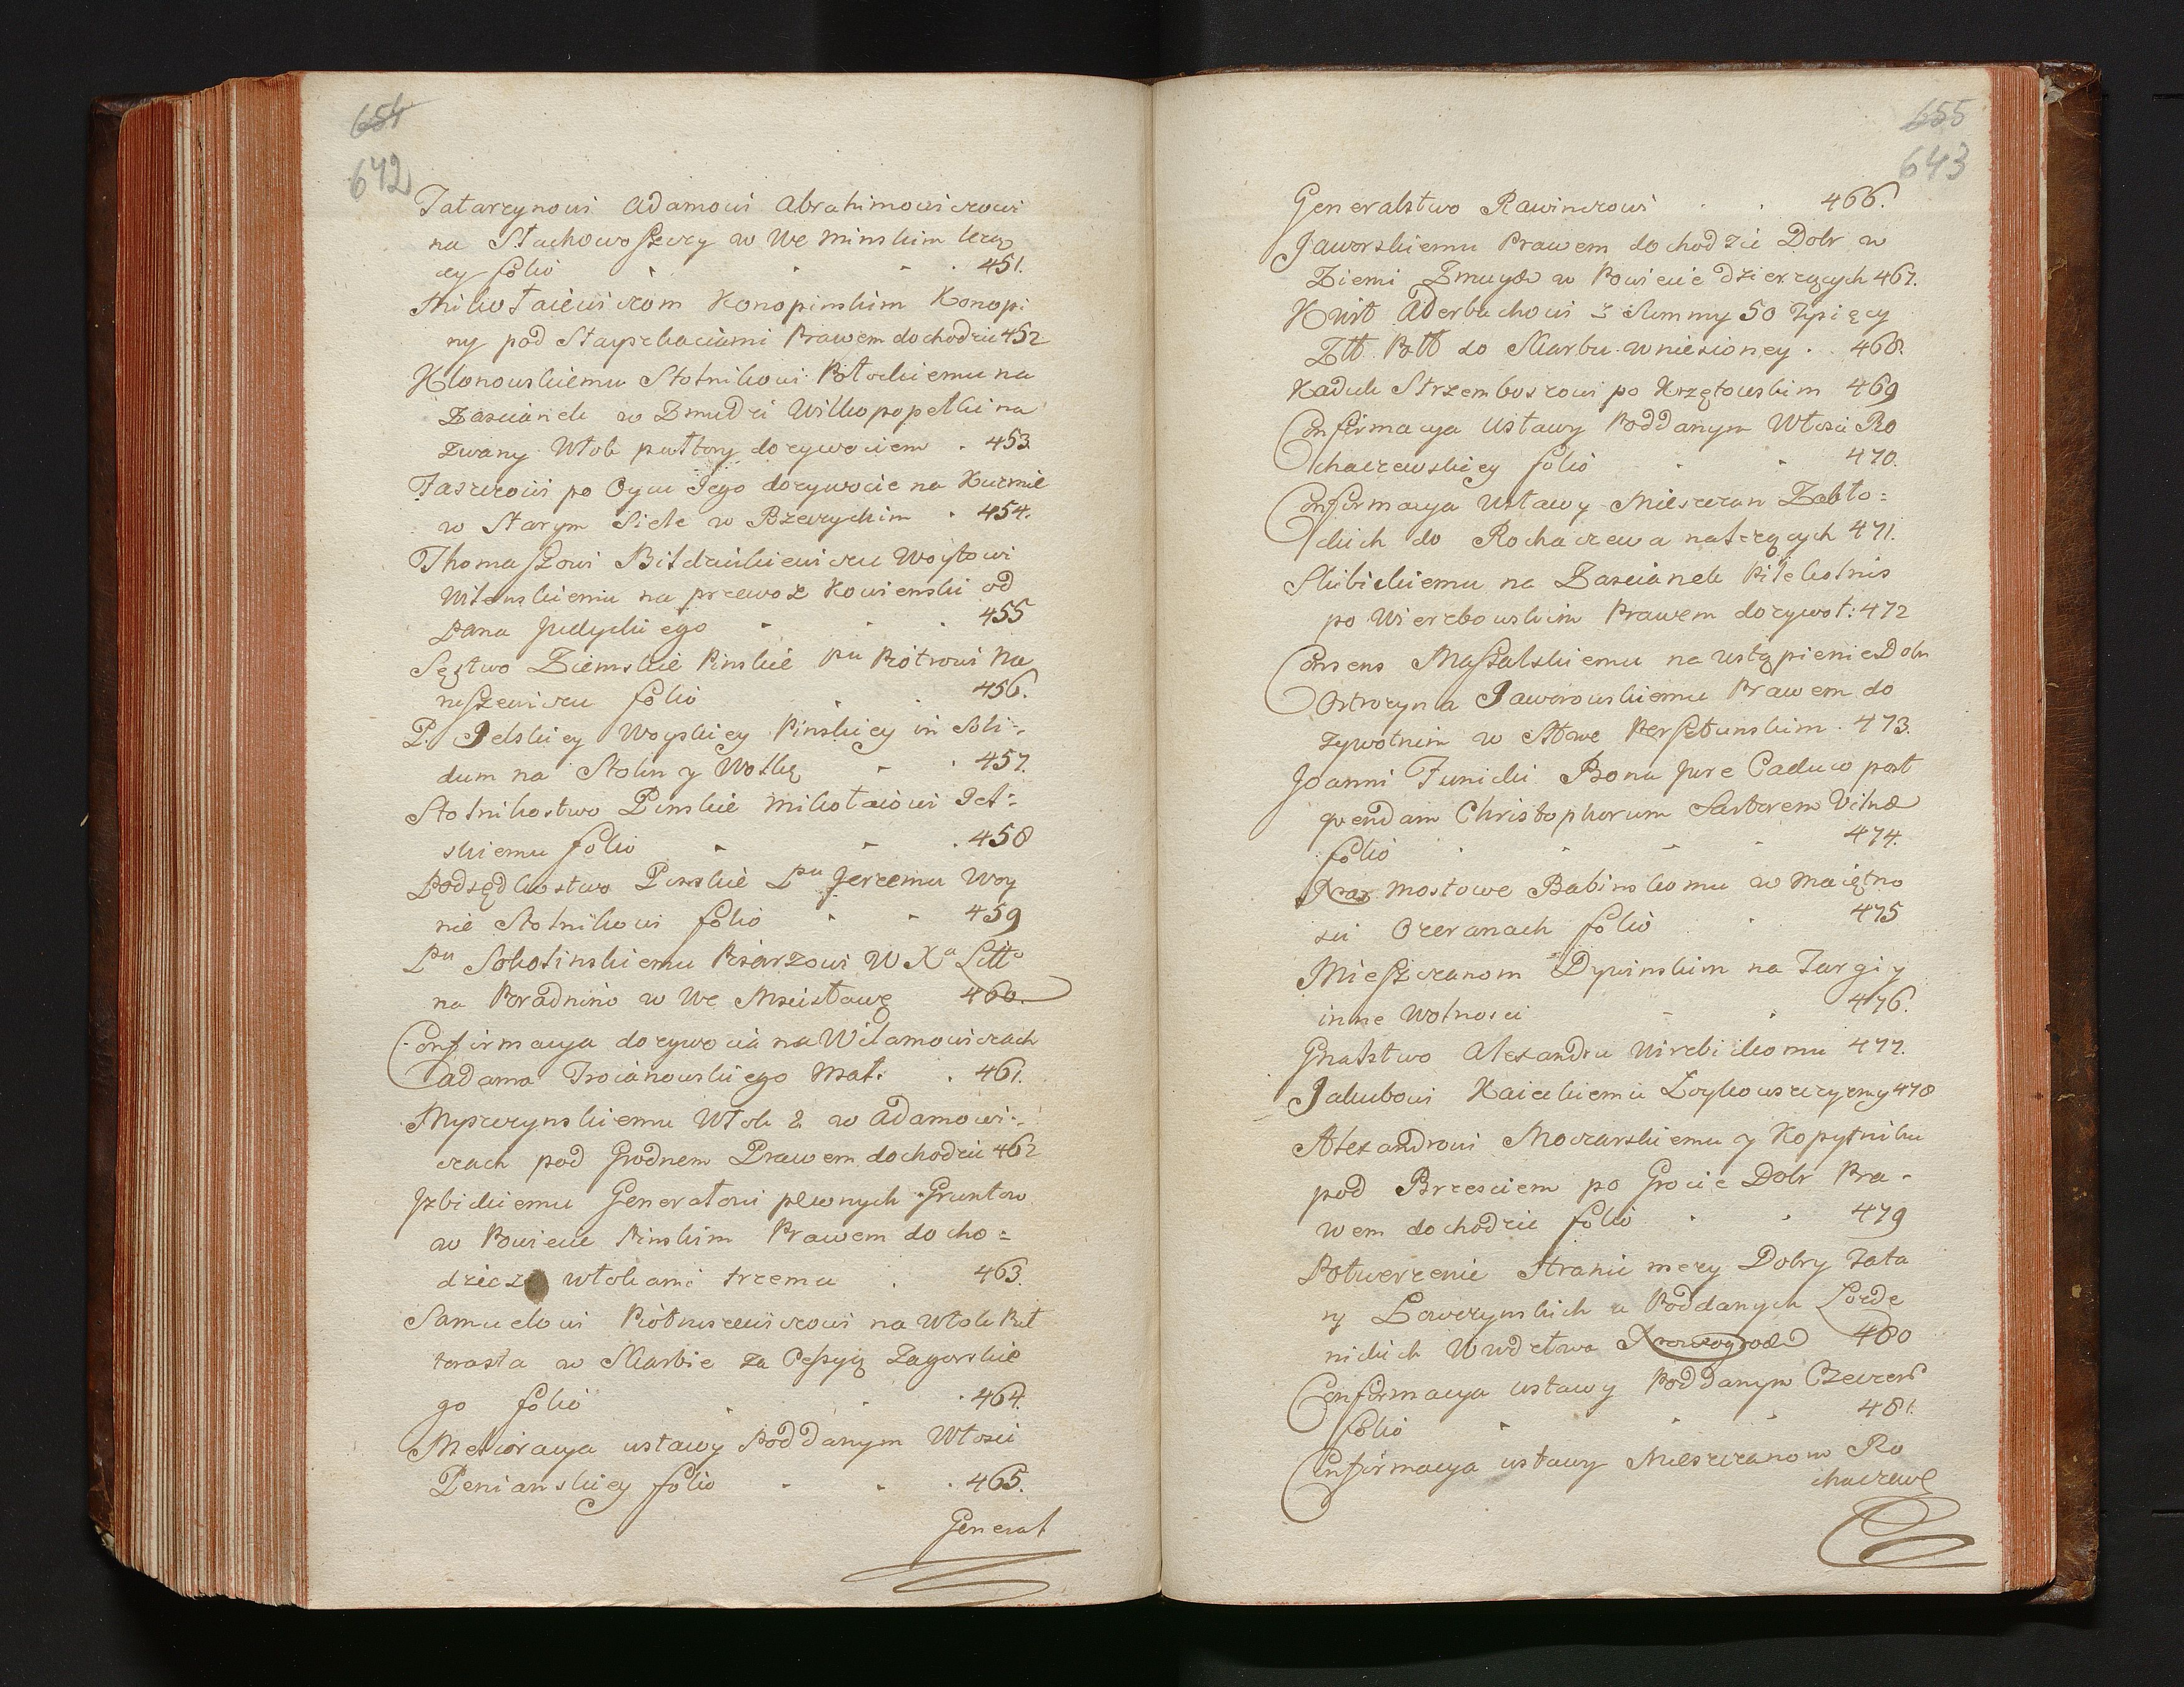 654
642
Tatarzynowi Adamowi Abrahimowiczowi
na Stachowszczyz w We Minskim leżą
cy folio 451.
Mikołaiewiczom Konopinskim Konopi
ny pod Prawem dochodzić 452
Klonowskiemu Stolnikowi Połockiemu na
Zascianek w Zmudzi Wilkopopelki na
zwany Włok pułtory dozywociem . 453.
Jaszczowi po Oycu Jego dozywocie na Kuźmie
w Starym Siele w Rzeczyckim . 454.
Thomaszowi Woytowi
Wilenskiemu na przewoz Kowienski od
Pana Judyckiego 455
Sęstwo Ziemskie Pinskie Pu Piotrowi Na
ruszewiczu folio 456.
P. Jelskiey Woyskiey Pinskiey in Soli-
dum na Stolin y Wolkę 457.
Stolnikostwo Pinskie Mikołaiowi Jel=
skiemu folio 458
Podsędkostwo Pinskie Pu Jerzemu Woy
nie Stolnikowi folio 459
Pu Sokolinskiemu Pisarzowi W Xa Litto
na Poradnino w We Mscisławs 460.
Confirmacya dozywocia na Wilamowiczach
Adama Troianowskiego Mat. . 461.
Myszczynskiemu Włok 2 w Adamowi=
czach pod Grodnem Prawem dochodzić 462
Izbickiemu Generałowi pewnych Gruntow
w Powiecie Pinskim Prawem docho=
dzicz włokami trzema . 463.
Samuelowi Piotruszewiczowi na Włok Puł
torasta w Skarbie za Cessyią Zagorskie
go folio 464.
Melioracya ustawy Poddanym Włosci
Penianskiey folio 465.
General
655
643
Generalstwo Rawinczowi 466.
Jaworskiemu Prawem dochodzić Dobr w
Ziemi Zmuydz w Powiecie dzierzących 467.
Kwit Aderbachowi z Summy 50 Tysięcy
Złł Pollł do Skarbu wniesioney . 468.
Kaduk Strzemboszowi po Krzętowskim 469
Confirmacya Ustawy Poddanym Włosci Ro
chaczewskiey folio 470.
Confirmacya Ustawy Miesczan Zabło=
ckich do Rochaczewa należących 471.
Skibickiemu na Zascianek Pilekolnis
po Wierzbowskim Prawem dozywot: 472
Consens Maszalskiemu na ustąpienie Dobr
Ostrozyna Jaworowskiemu Prawem do
zywotnim w Sttwe Perstunskim . 473.
Joanni Funicki Bona Jure Caduco post
quendam Christophorum Sartorem Vilnæ
folio 474.
Mostowe Babinskomu w Maiętno
sci Ozeranach folio 475
Mieszczanom Dywinskim na Targi y
inne Wolnosci 476.
Gnalstwo Alexandru Wirzbickomu 477.
Jakubowi Kaieckiemu Zoykowszczyzny 478
Alexandrowi Moczarskiemu y Kopytniku
pod Brzesciem po Grocie Dobr Pra-
wem dochodzić folio 479
Potwerzenie Stranicmezy Dobry Tata
ry Lowczynskich a Poddanych Lozde
nickich Wwdctwa Nowogrod 480
Confirmacya ustawy Poddanym Czeczers
folio 481.
Confirmacya ustawy Miesczanow Ro
chaczews